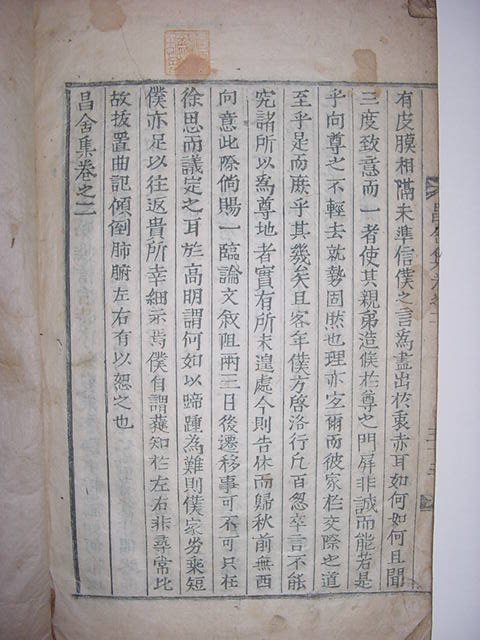 有皮膜相隔未準信僕之言為盡出於衷赤耳如何如何且聞
三度致意而一者使其親弟造候於尊之門屏非誠而能若是
乎向尊之不輕去就勢固然也理亦宜爾而彼家於交際之道
至乎是而庶乎其幾矣且客年僕方啓洛行凡百怱卒言不能
究諸所以為尊地者實有所未遑處今則告休而歸秋前無西
向意此際倘賜一臨論文叙阻兩三日後遷移事可不可只在
徐思而議定之耳於高明謂何如以蹄踵為難則僕家劣乘短
僕亦足以往返貴所幸細示焉僕自謂蕤知於左右非尋常比
故披置曲記傾倒肺腑左右有以恕之也
昌舍集卷之二